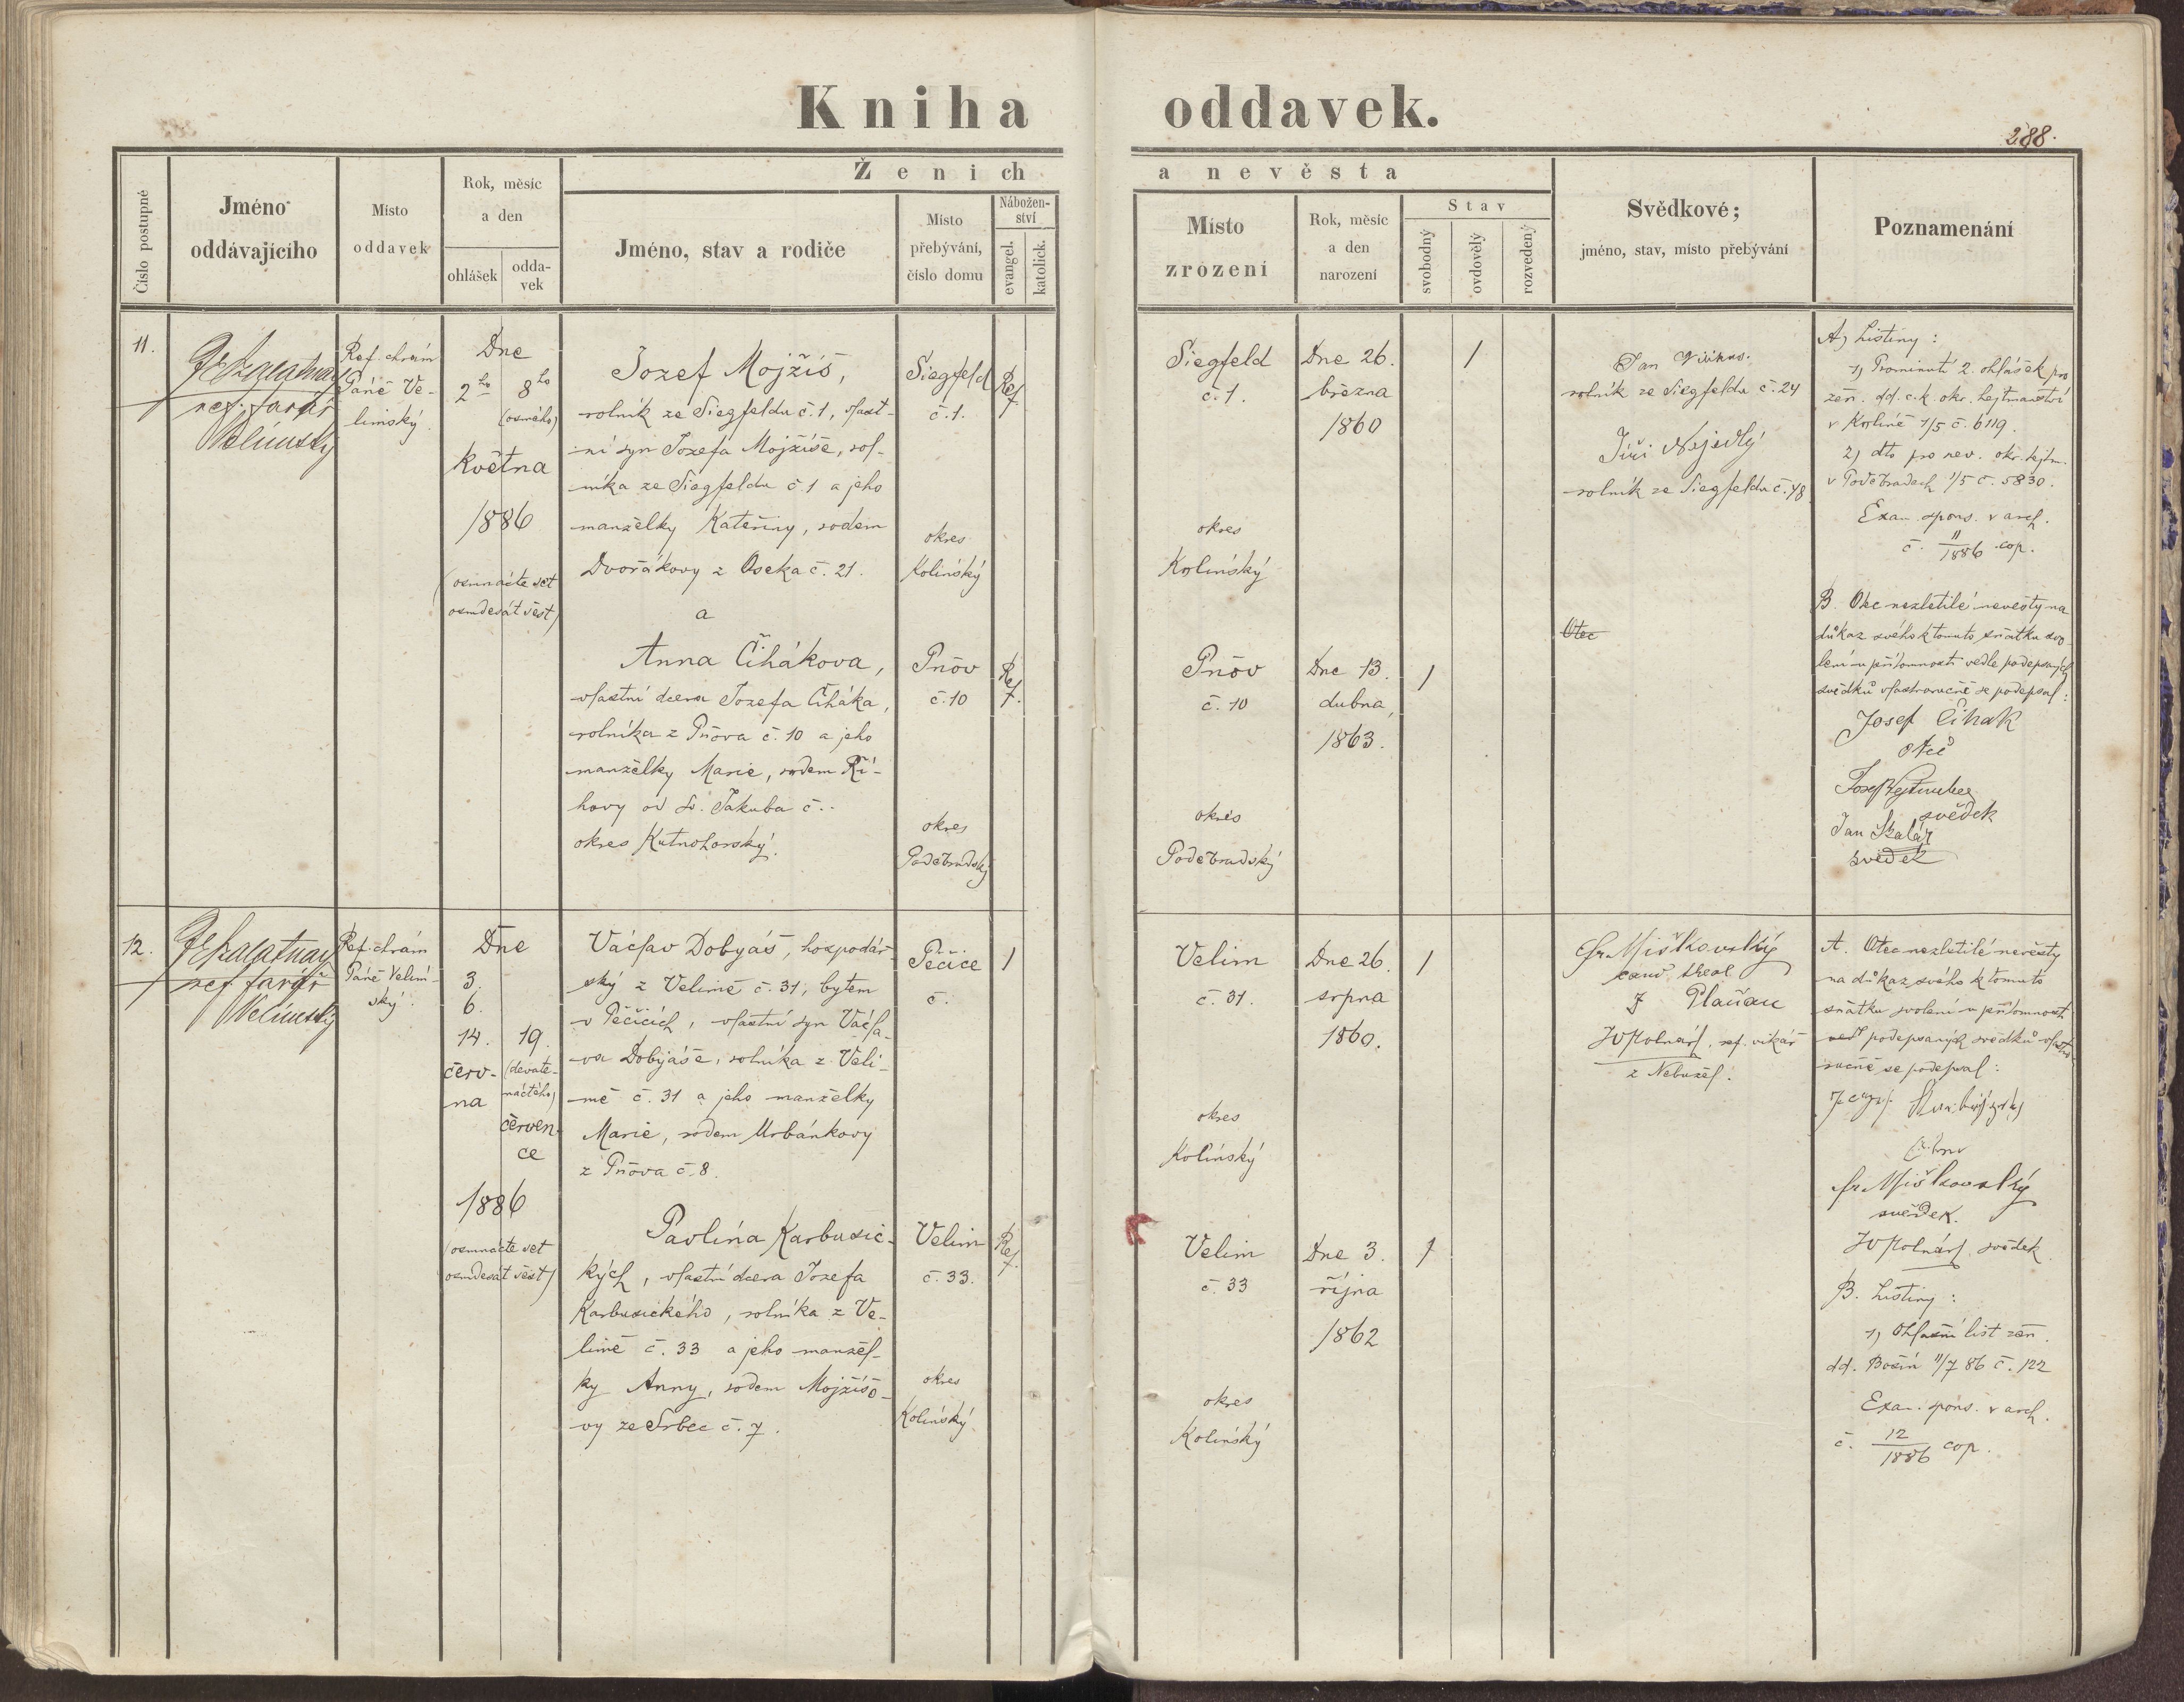 Kniha oddavek.
288.
Číslo postupné
Jméno oddávajícího
Místo oddavek
Rok, měsíc a den
ohlášek
odda-
vek
Ženich a nevěsta
Jméno, stav a rodiče
Místo přebývání, číslo domu
Nábožen-
ství
evangel.
katolick.
Místo zrození
Rok, měsíc a den narození
Stav
svobodný
ovdovělý
rozvedený
Svědkové;
jméno, stav, místo přebývání
Poznamenání
11.
ref. farář
Velimský
Ref. chrám
Páně Ve-
limský.
Dne
2ho 8ho
(osmého)
května
1886
(osmnácte set
osmdesát šest)
Jozef Mojžíš,
rolník ze Siegfeldu č. 1, vlast-
ní syn Jozefa Mojžíše, rol-
níka ze Siegfeldu č. 1 a jeho
manželky Kateřiny, rodem
Dvořákovy z Oseka č. 21.
a
Anna Čihákova,
vlastní dcera Jozefa Čiháka,
rolníka z Pňova č. 10 a jeho
manželky Marie, rodem Ří-
hovy od Sv. Jakuba č. -
okres Kutnohorský.
Siegfeld
č. 1.
okres
Kolínský
Pňov
č. 10
okres
Poděbradský
Ref.
Ref.
Siegfeld
č. 1.
okres
Kolínský
Pňov
č. 10
okres
Poděbradský
Dne 26.
března
1860
Dne 13.
dubna,
1863.
1
1
Jan
rolník ze Siegfeldu č. 24
Jiří Nejedlý
rolník ze Siegfeldu č. 48
Otec
A, Listiny:
1, Prominutí 2. ohlášek pro
žen. dd. c. k. okr. hejtmanství
v Kolíně 1/5 č. 6119.
2, dto pro nev. okr. hejtm.
v Poděbradech 1/5 č. 5830.
Exam. spons. v arch.
č. 11/1886 cop.
B. Otec nezletilé nevěsty na
důkaz svého k tomuto sňatku svo-
lení u přítomnosti vedle podepsaných
svědků vlastnoručně se podepsal:
Josef Čihak
otec
svědek
Jan Skalář
svědek
12.
ref. farář
Velimský
Ref. chrám
Páně Velim-
ský.
Dne
3.
6.
14. 19.
červ-
na
(devate-
náctého)
červen-
ce
1886
(osmnácte set
osmdesát šest)
Václav Dobyáš, hospodář-
ský z Velimě č. 31, bytem
v Pěčicích, vlastní syn Václa-
va Dobyáše, rolníka z Veli-
mě č. 31 a jeho manželky
Marie, rodem Urbánkovy
z Pňova č. 8.
Pavlína Karbusic-
kých, vlastní dcera Jozefa
Karbusického, rolníka z Ve-
limě č. 33 a jeho manžel-
ky Anny, rodem Mojžíšo-
vy ze Srbce č. 7.
Pěčice
č.
Velim
č. 33.
okres
Kolínský
1
Ref.
Velim
č. 31.
okres
Kolínský
Velim
č. 33
okres
Kolínský
Dne 26.
srpna
1860.
Dne 3.
října
1862
1
1
Fr. Miškovský
cand. theol.
z Plaňan
JV Molnár, ref. vikář
z Nebužel.
A. Otec nezletilé nevěsty
na důkaz svého k tomuto
sňatku svolení u přítomnosti
vedl podepsaných svědků vlastno-
ručně se podepsal:
Fr. Miškovský
svědek.
JV Molnár, svědek
B. Listiny:
1, Ohlašní list žen.
dd. 11/7 86 č. 122
Exam. spons. v arch.
č. 12/1886 cop.